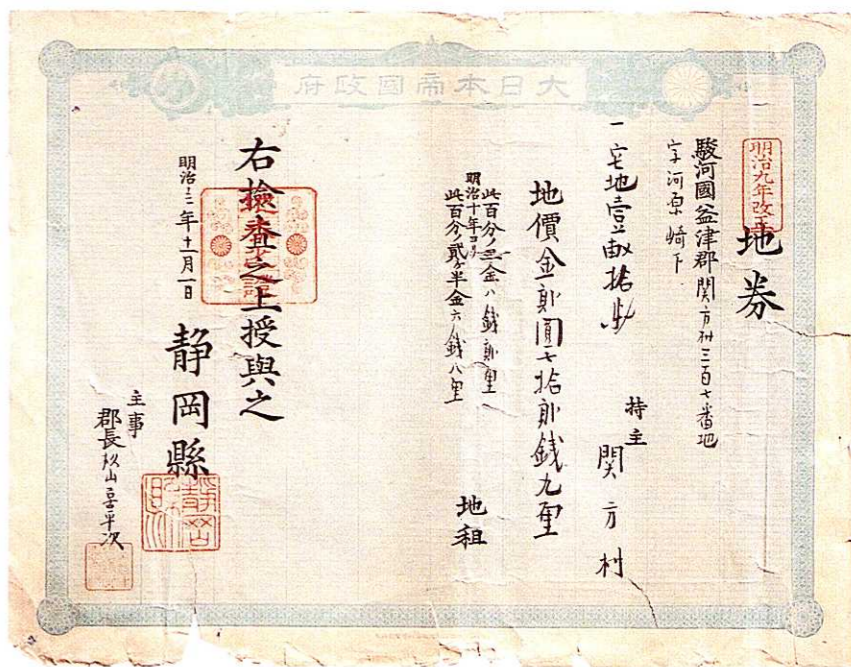 大日本帝國政府
明治九年改正
地券
駿河國益津郡関方村三百七番地
字河原崎下
一宅地壹畝拾歩
持主 関方村
地價金貳圓七拾貳銭九厘
此百分ノ三金八銭貳厘
明治十年ヨリ
此百分ノ貳ヶ半金六銭八厘
地租
右撿査之上授與之
明治十三年十一月一日
静岡縣
主事
郡長杉山喜平次